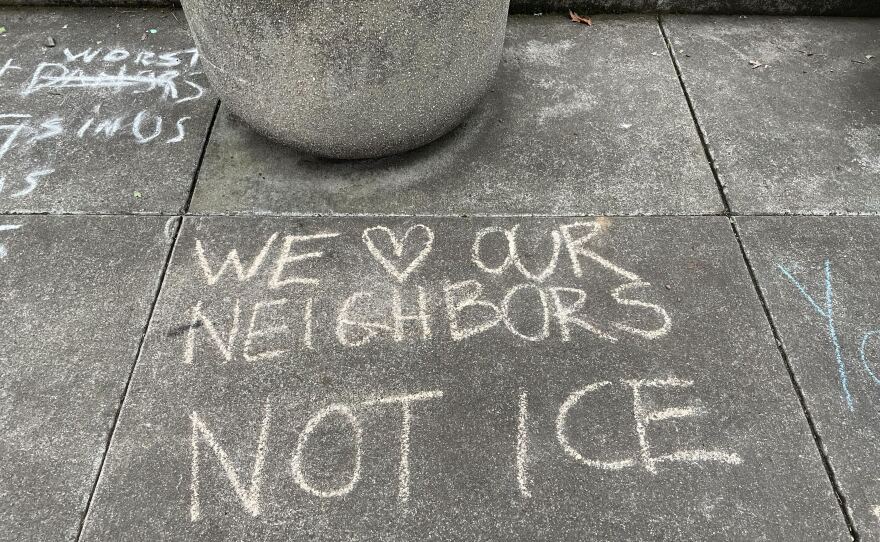 WORST
IN US
WE ♡ OUR
NEIGHBORS
NOT ICE